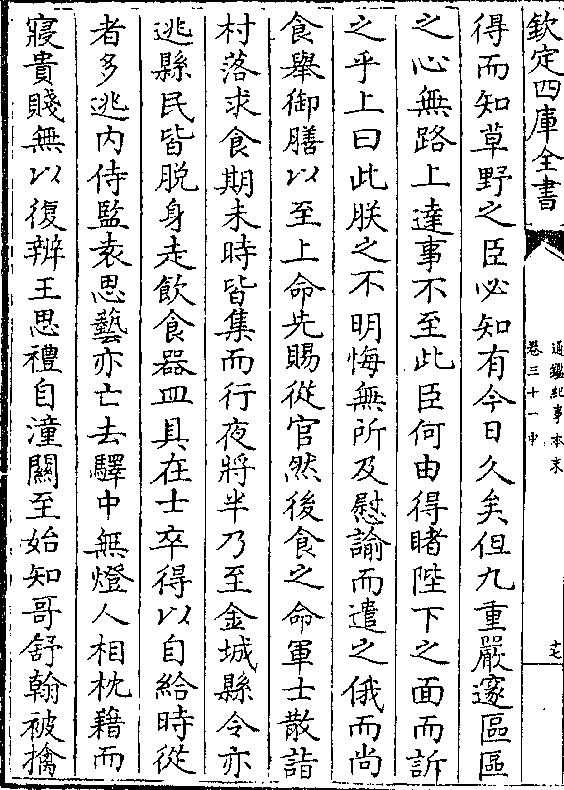 欽定四庫全書
通鑑紀事本末
卷三十一中
得而知草野之臣必知有今日久矣但九重嚴邃區區
之心無路上達事不至此臣何由得睹陛下之面而訴
之乎上曰此朕之不明悔無所及慰諭而遣之俄而尚
食舉御膳以至上命先賜從官然後食之命軍士散詣
村落求食期未時皆集而行夜將半乃至金城縣令亦
逃縣民皆脱身走飲食器皿具在士卒得以自給時從
者多逃内侍監袁思藝亦亡去驛中無燈人相枕藉而
寢貴賤無以復辨王思禮自潼關至始知哥舒翰被擒